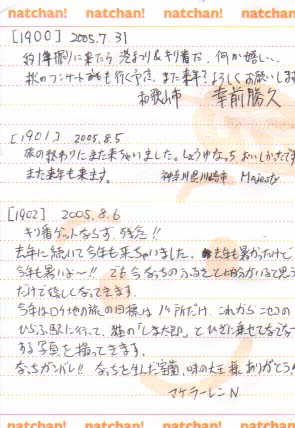 natchan! natchan! natchan! natchan!
[1900] 2005.7.31
約1年振りに来たら 港まつり&キリ番だ、何か嬉しい。
秋のコンサートも行く予定、また来年?よろしくお願いします
和歌山市 幸前勝久
[1901] 2005.8.5
旅の終わりにまた来ちゃいました。しょうゆなっち おいしかったです
また来年も来ます。 神奈川県川崎市 Majesty
[1902] 2005.8.6
キリ番ゲットならず、残念!!
去年に続いて今年も来ちゃいました、去年も暑かったけど
今年も暑いよ〜!! でも今なっちのふるさとに自分がいると思う
だけで嬉しくなってきます。
今年はロケ地の旅の目標は1ヶ所だけ、これからニセコの
ひらふ駅に行って、猫の「しま太郎」とひざに乗せてなでなで
する写真を撮ってきます。
なっちガンバレ!! なっちを生んだ室蘭、味の大王様ありがとう!
マケラーレンN
natchan! natchan! natchan! natchan!